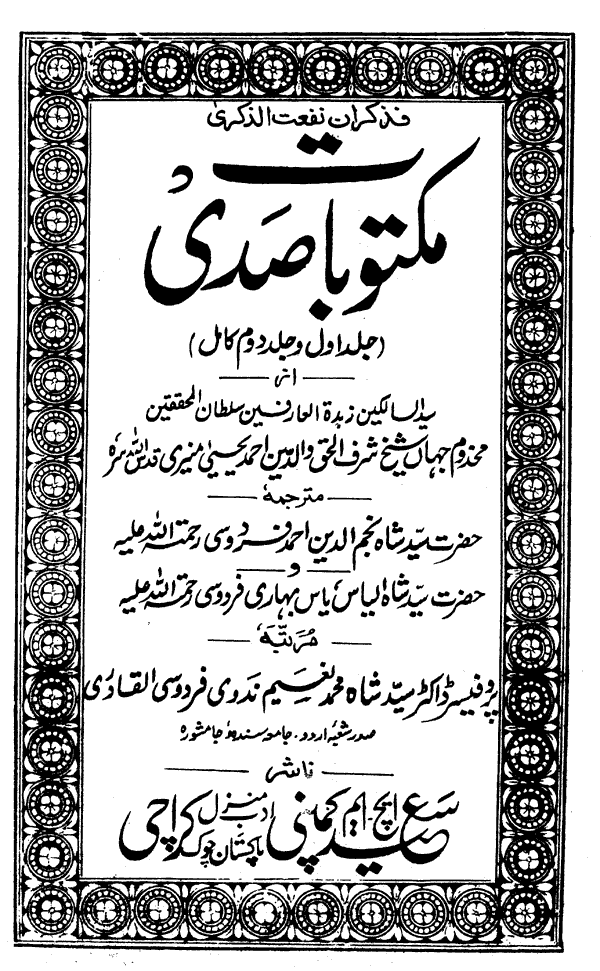 فذکر ان نفعت الذکریٰ
مکتوبات صدی
(جلد اول و جلد دوم کامل)
از
سید السالکین زبدۃ العارفین سلطان المحققین
مخدوم جہاں شیخ شرف الحق والدین احمد یحییٰ منیری قدس اللہ سرہ
مترجمہ
حضرت سید شاہ نجم الدین احمد فردوسی رحمۃ اللہ علیہ
و
حضرت سید شاہ الیاس یاس بہاری فردوسی رحمۃ اللہ علیہ
مرتبہ
پروفیسر ڈاکٹر سید شاہ محمد نعیم ندوی فردوسی القادری
صدر شعبۂ اردو ۔ جامعہ سندھ جامشورو
ناشر
ایچ ۔ ایم سعید کمپنی ادب منزل پاکستان چوک کراچی